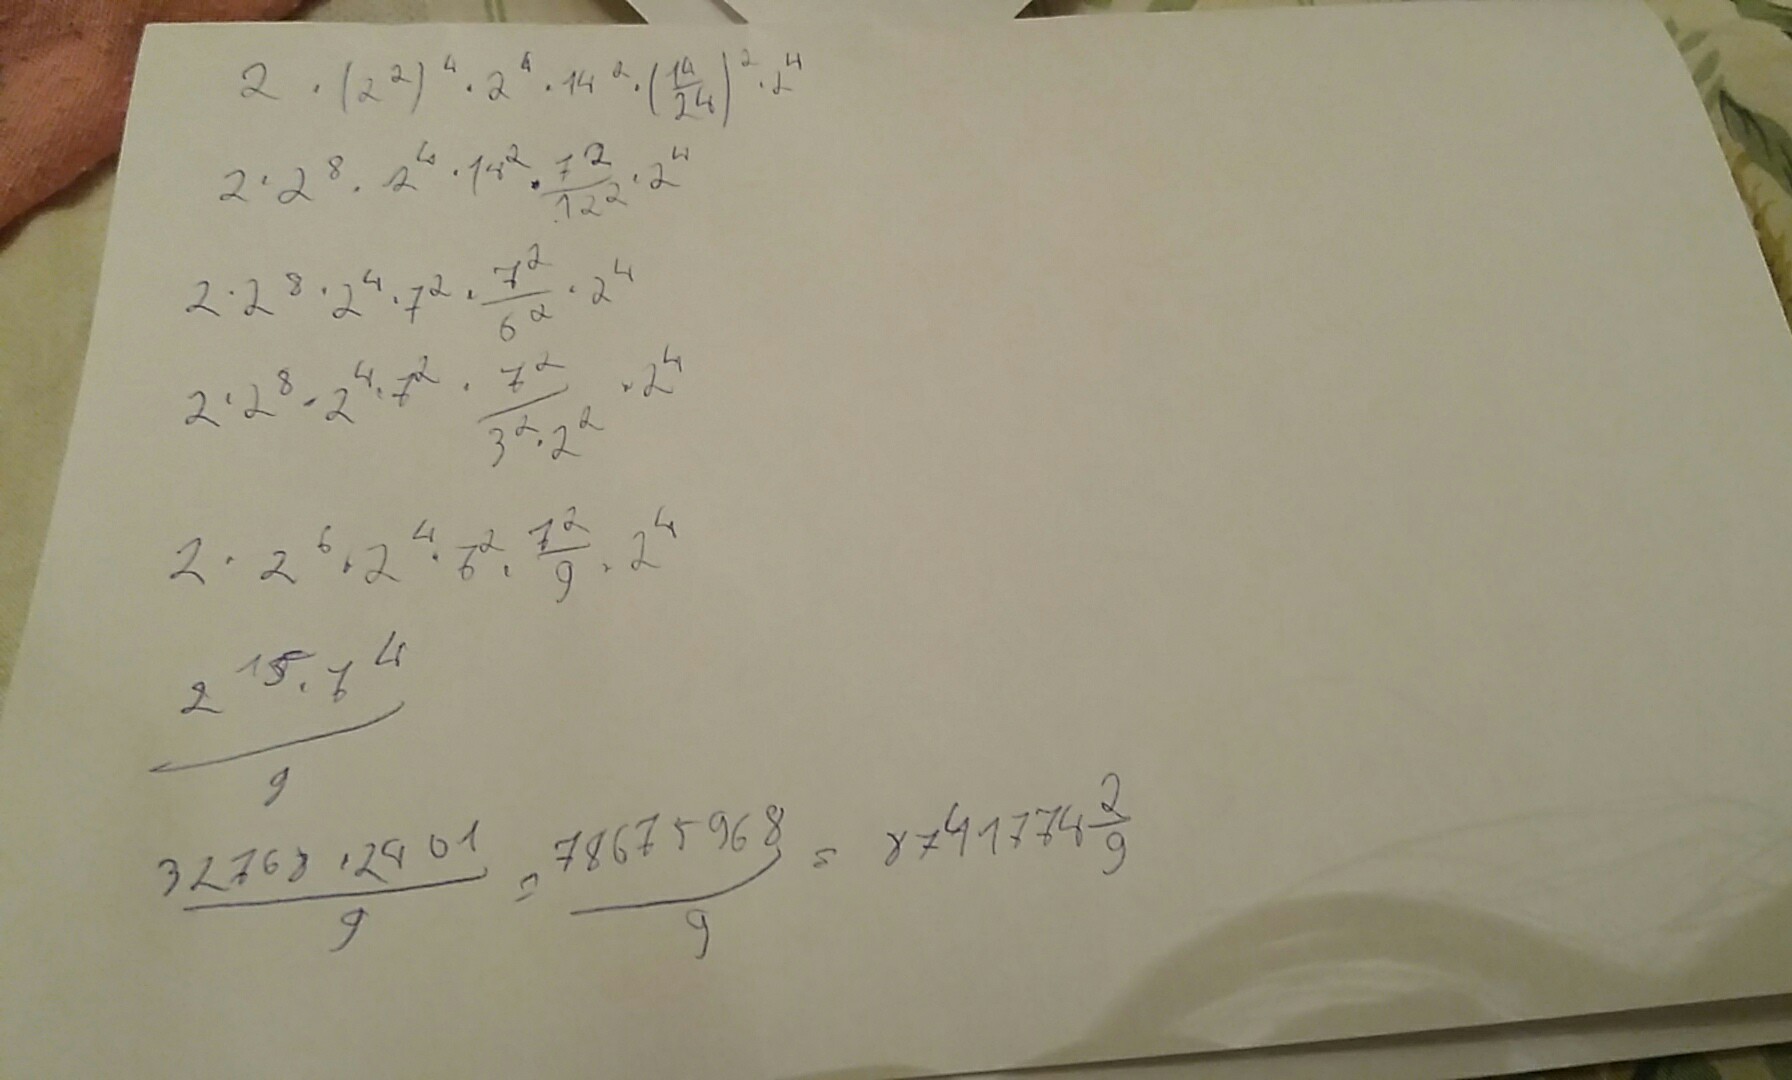 2 · (2²)⁴ · 2⁴ · 14² · (14/24)² · 2⁴
2 · 2⁸ · 2⁴ · 14² · 7²/12² · 2⁴
2 · 2⁸ · 2⁴ · 7² · 7²/6² · 2⁴
2 · 2⁸ · 2⁴ · 7² · 7²/(3² · 2²) · 2⁴
2 · 2⁶ · 2⁴ · 7² · 7²/9 · 2⁴
(2¹⁵ · 7⁴)/9
(32768 · 2401)/9 = 78675968/9 = 8741774 2/9